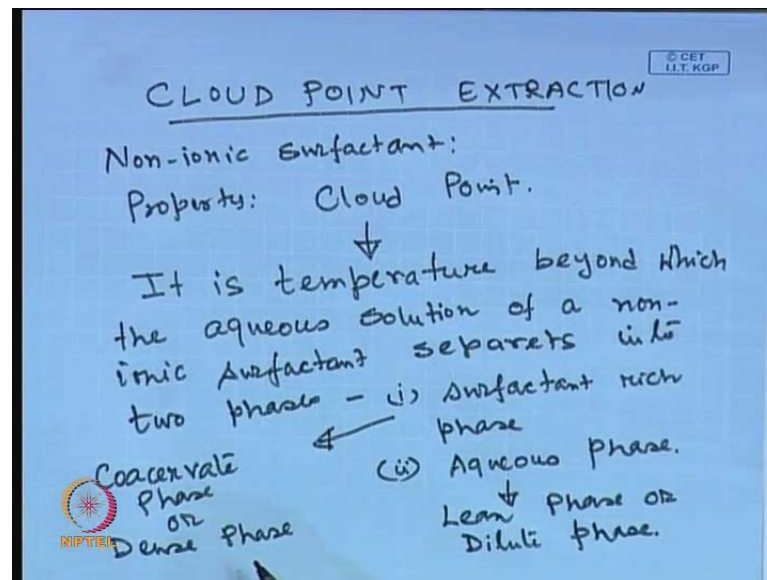 © CET
I.I.T. KGP
CLOUD POINT EXTRACTION
Non-ionic surfactant:
Property: Cloud Point.
It is temperature beyond which
the aqueous solution of a non-
ionic surfactant separets into
two phases - (i) surfactant rich
phase
(ii) Aqueous phase.
Coacervate
phase
or
Dense phase
Lean phase or
Dilute phase.
NPTEL